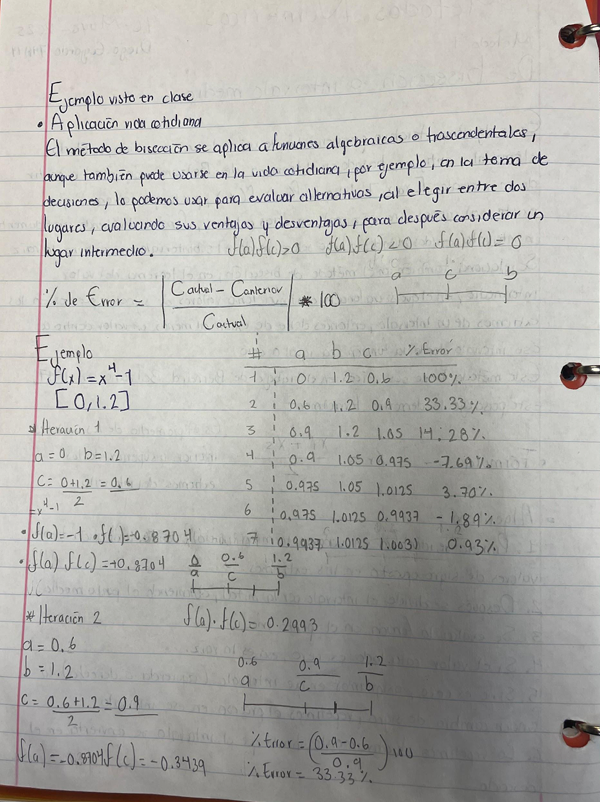 Ejemplo visto en clase
• Aplicación vida cotidiana
El método de bisección se aplica a funciones algebraicas o trascendentales,
aunque también puede usarse en la vida cotidiana, por ejemplo, en la toma de
decisiones, lo podemos usar para evaluar alternativas, al elegir entre dos
lugares, evaluando sus ventajas y desventajas, para después considerar un
lugar intermedio. f(a)f(c)>0 f(a)f(c)<0 f(a)f(c)=0
a c b
% de Error = |Cactual - Canterior / Cactual| * 100
Ejemplo
f(x)=x⁴-1
[0,1.2]
# a b c %Error
1 0 1.2 0.6 100%
2 0.6 1.2 0.9 33.33%
3 0.9 1.2 1.05 14.28%
4 0.9 1.05 0.975 -7.69%
5 0.975 1.05 1.0125 3.70%
6 0.975 1.0125 0.9937 -1.89%
7 0.9937 1.0125 1.0031 0.93%
Iteración 1
a=0 b=1.2
C= 0+1.2/2 = 0.6
=x⁴-1
• f(a)=-1 • f( )=-0.8704
• f(a) f(c)=+0.8704
0 0.6 1.2
a c b
* Iteración 2 f(a)·f(c)= 0.2993
a=0.6
b=1.2
C= 0.6+1.2/2 = 0.9
0.6 0.9 1.2
a c b
f(a)=-0.8704 f(c)=-0.3439
%Error=(0.9-0.6/0.9)100
%Error= 33.33%